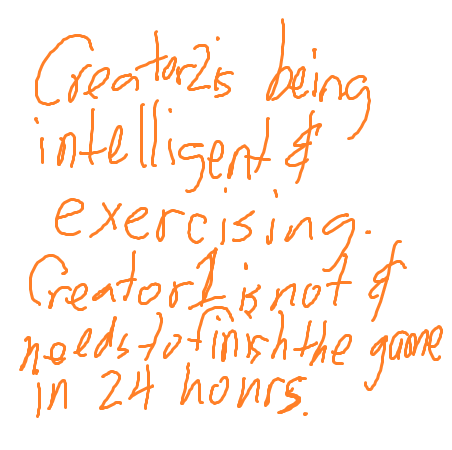 Creator2 is being
intelligent &
exercising.
Creator1 is not &
needs to finish the game
in 24 hours.